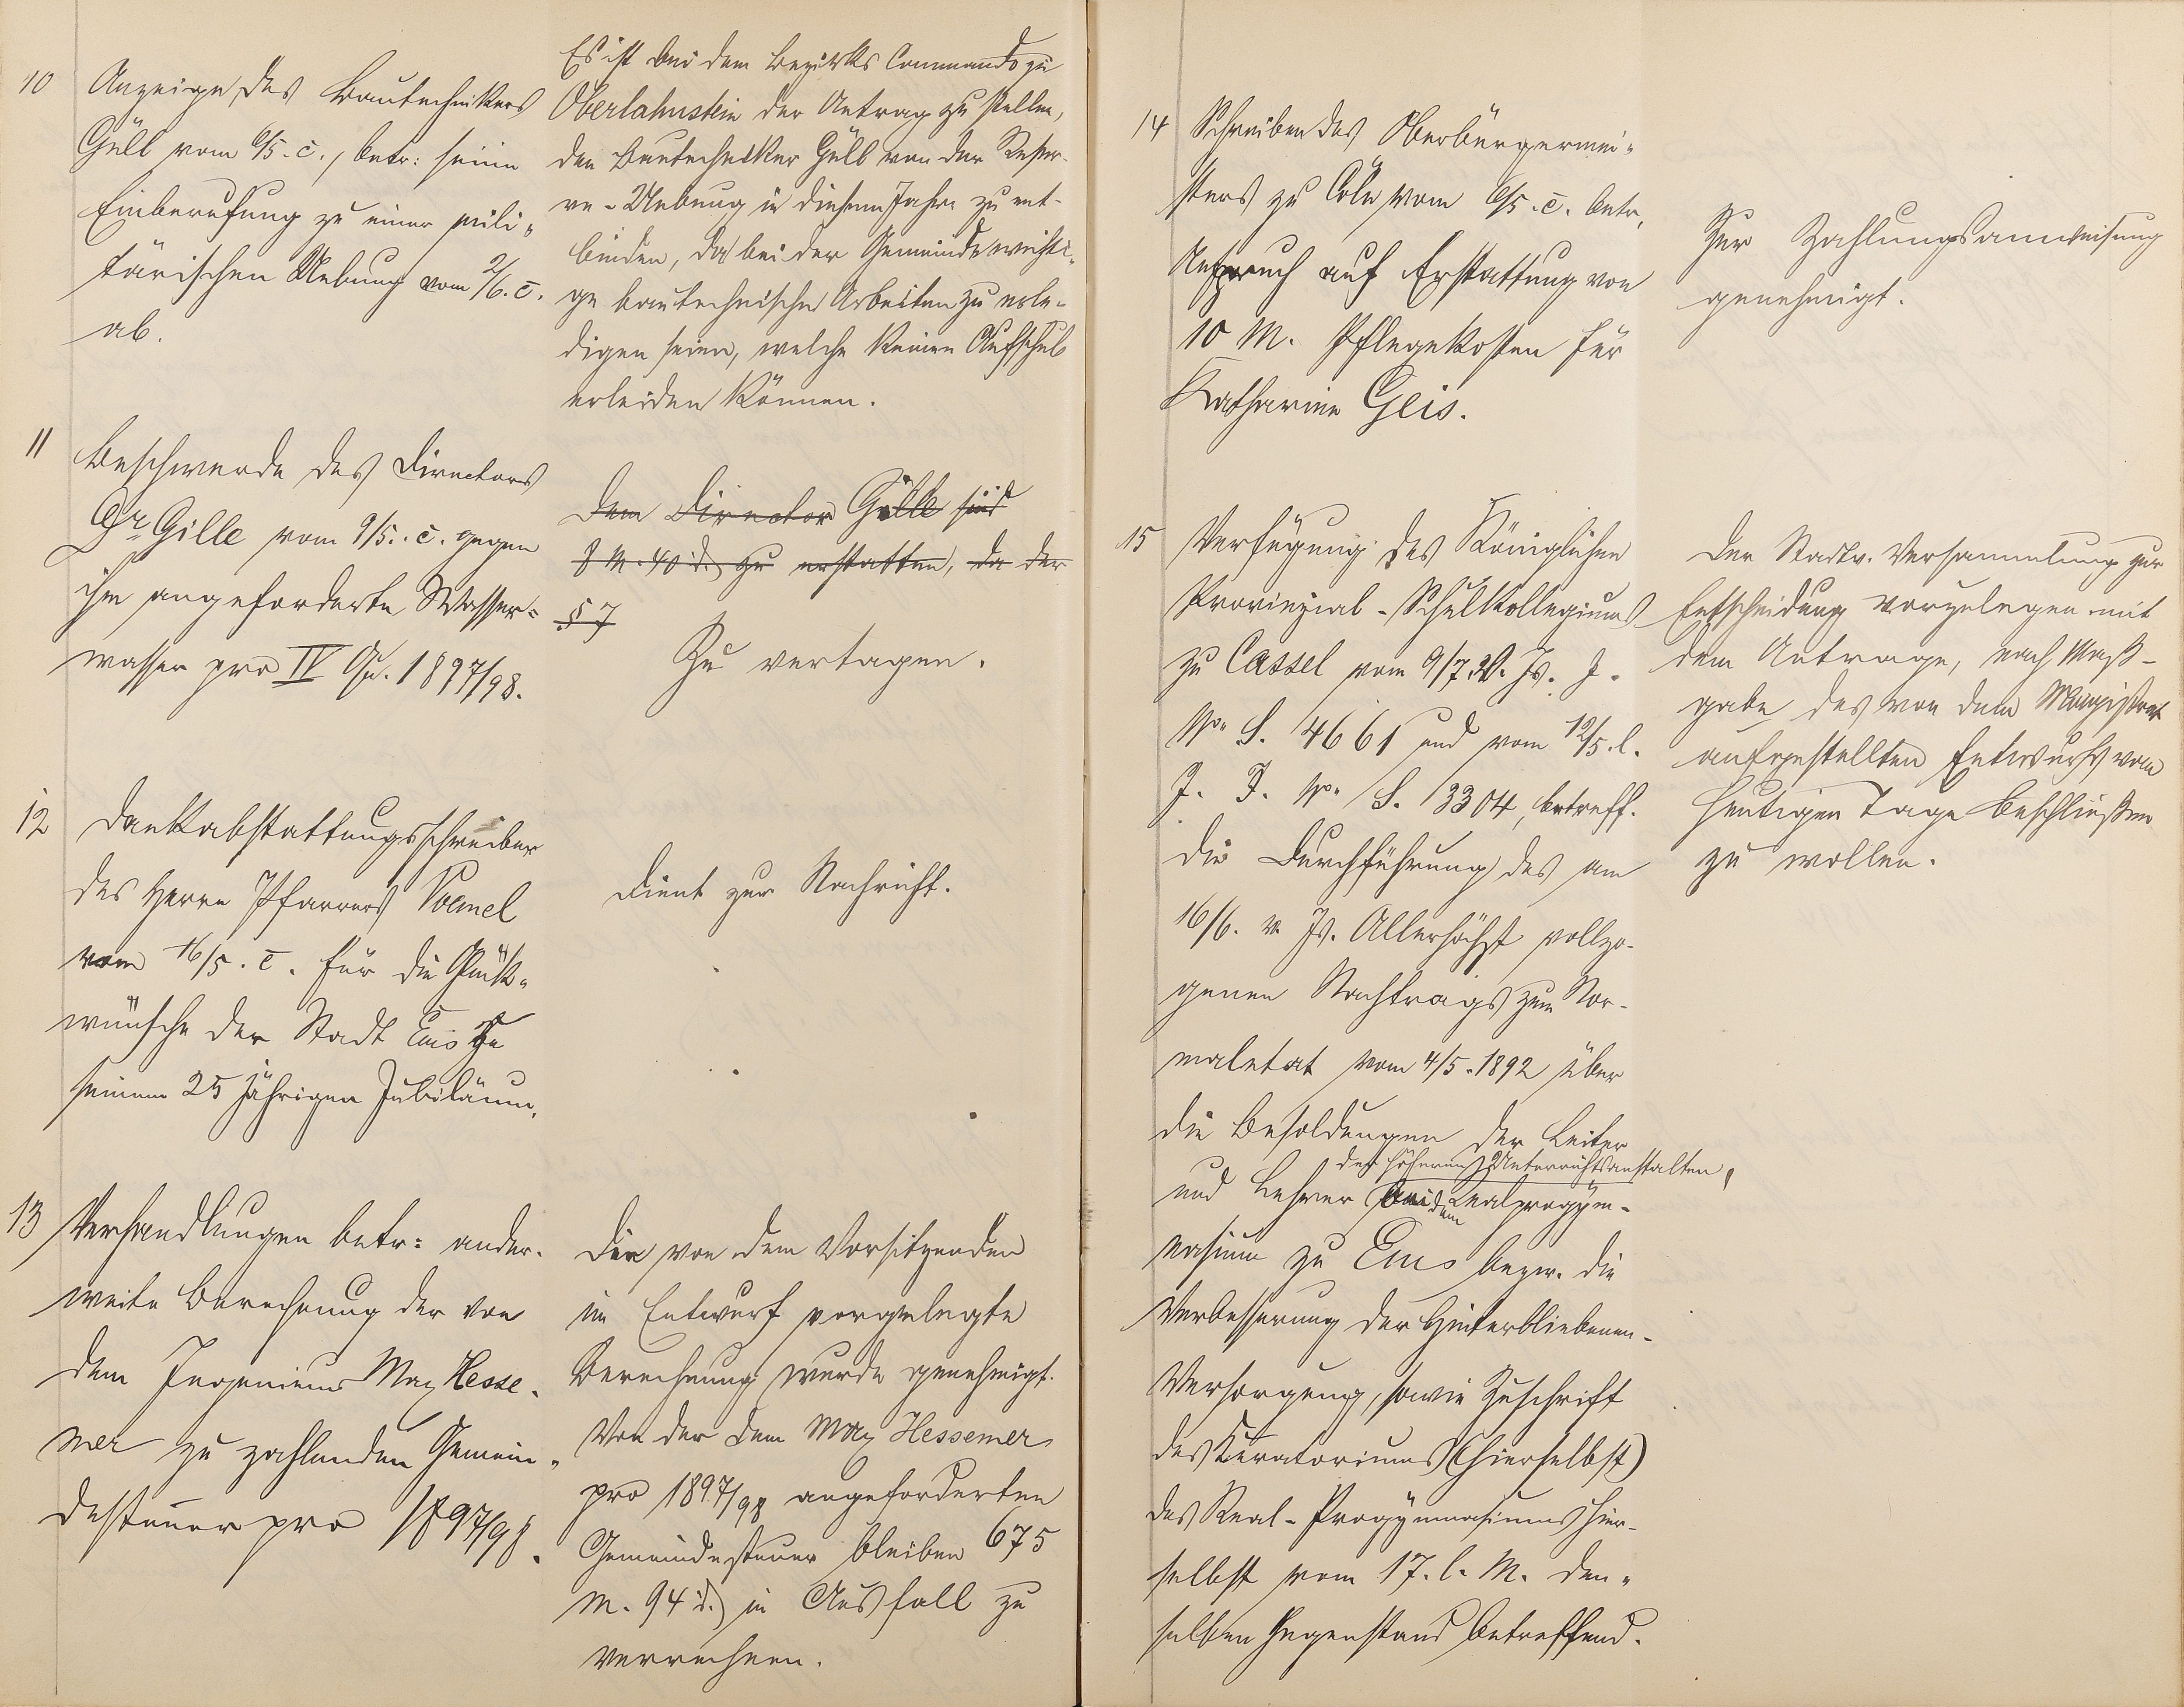 10
Anzeige des Bautechnikers
Güll vom 6/5. c., betr: seine
Einberufung zu einer mili„
tärischen Uebung vom 2/6. c.
ab.
Es ist bei dem Bezirks Commando zu
Oberlahnstein der Antrag zu stellen,
den Bautechniker Güll von der Reser-
ve-Uebung in diesem Jahre zu ent-
binden, da bei der Gemeinde wichti„
ge bautechnische Arbeiten zu erle-
digen seien, welche keinen Aufschub
erleiden können.
11
Beschwerde des Directors
Dr Gille vom 9/5. c. gegen
ihm angeforderte Wasser=
wasser pro IV Qu. 1897/98.
Dem Director Gille sind
8 M. 40 d. zu erstatten, da der
§ 7
Zu vertagen.
12
Dankabstattungsschreiben
des Herrn Pfarrers Vömel
vom 16/5. c. für die Glück„
wünsche der Stadt Ems zu
seinem 25 jährigen Jubiläum.
Dient zur Nachricht.
13
Verhandlungen betr: ander-
weite Berechnung der von
dem Ingenieur Max Hesse-
mer zu zahlenden Gemein„
desteuer pro 1897/98.
Die von dem Vorsitzenden
im Entwurf vorgelegte
Berechnung wurde genehmigt.
Von der dem Max Hessemer
pro 1897/98 angeforderten
Gemeindesteuer bleiben 675
M. 94 d. in Ausfall zu
verrechnen.
14
Schreiben des Oberbürgermei„
sters zu Cöln vom 6/5. c. betr.
Anspruch auf Erstattung von
10 M. Pflegekosten für
Katharine Geis.
Zur Zahlungsanweisung
genehmigt.
15
Verfügung des Königlichen
Provinzial-Schulkollegiums
zu Cassel vom 9/7. v. Js. J.
No. S. 4661 und vom 12/5. l.
J. J. No. S. 3304, betreff.
die Durchführung des am
16/6. v. Js. Allerhöchst vollzo-
genen Nachtrags zum Nor-
maletat vom 4/5. 1892 über
die Besoldungen der Leiter
der höheren Unterrichtsanstalten,
und Lehrer bei dem Realprogym-
nasium zu Ems bezw. die
Verbesserung der Hinterbliebenen-
Versorgung, sowie Zuschrift
des Kuratoriums (hierselbst)
des Real-Progymnasiums hier-
selbst vom 17. l. M. den„
selben Gegenstand betreffend.
Der Stadtv. Versammlung zur
Entscheidung vorzulegen mit
dem Antrage, nach Maß-
gabe des von dem Magistrat
aufgestellten Entwurfs vom
heutigen Tage beschließen
zu wollen.